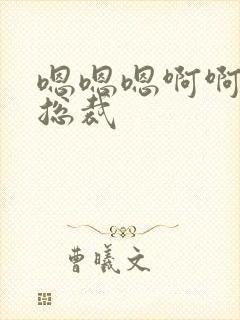 嗯嗯嗯啊啊
总裁
曹曦文